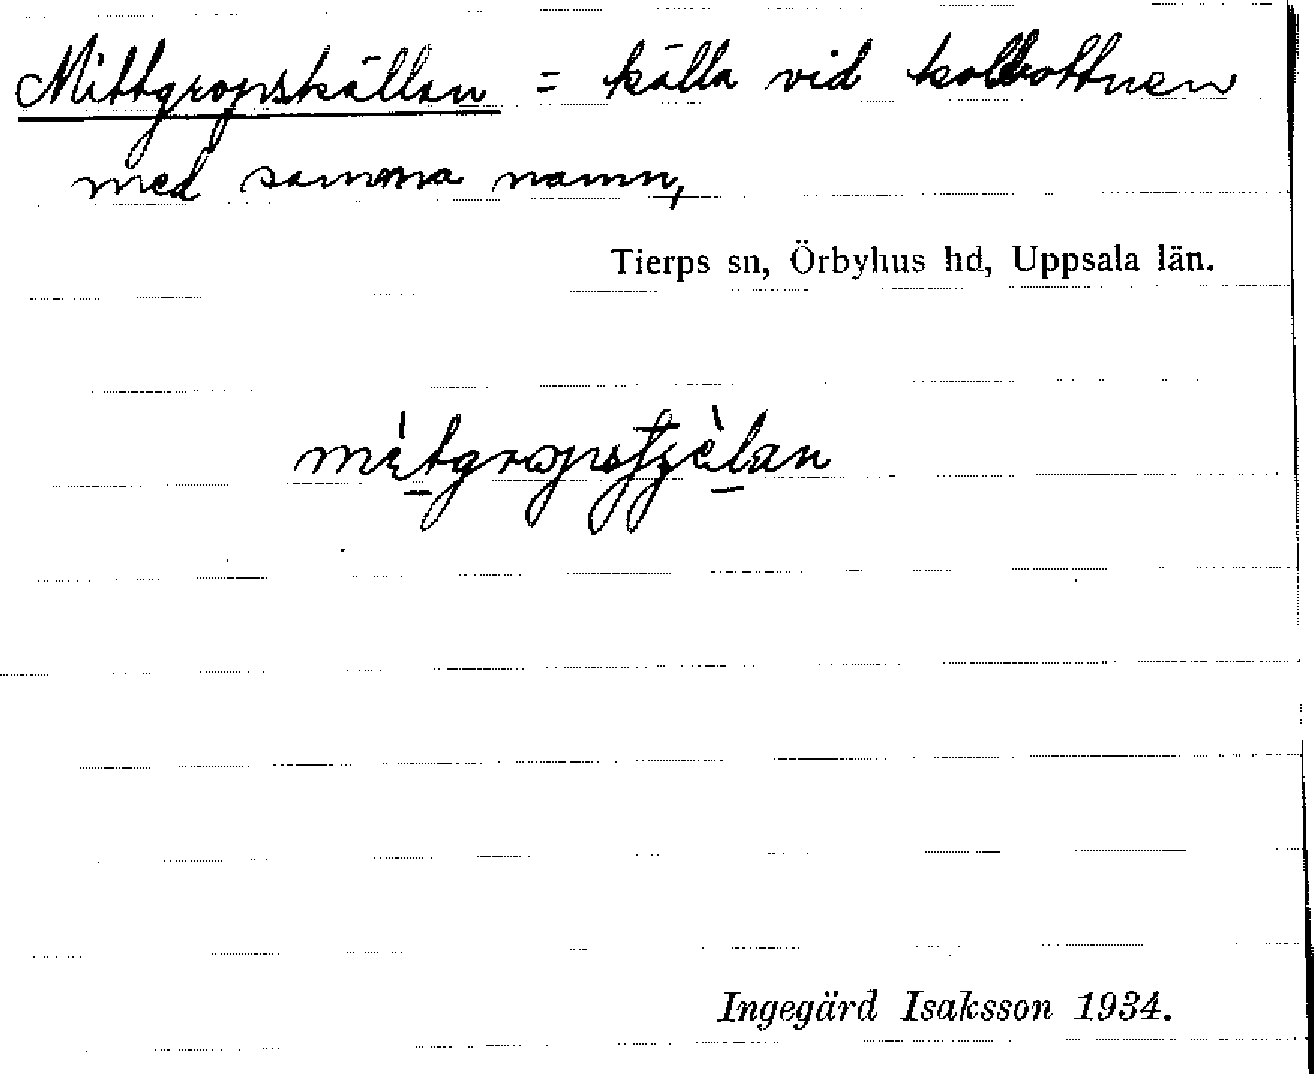 Mittgropskällan = källa vid kolbottnen
med samma namn,
Tierps sn, Örbyhus hd, Uppsala län.
Ingegärd Isaksson 1934.